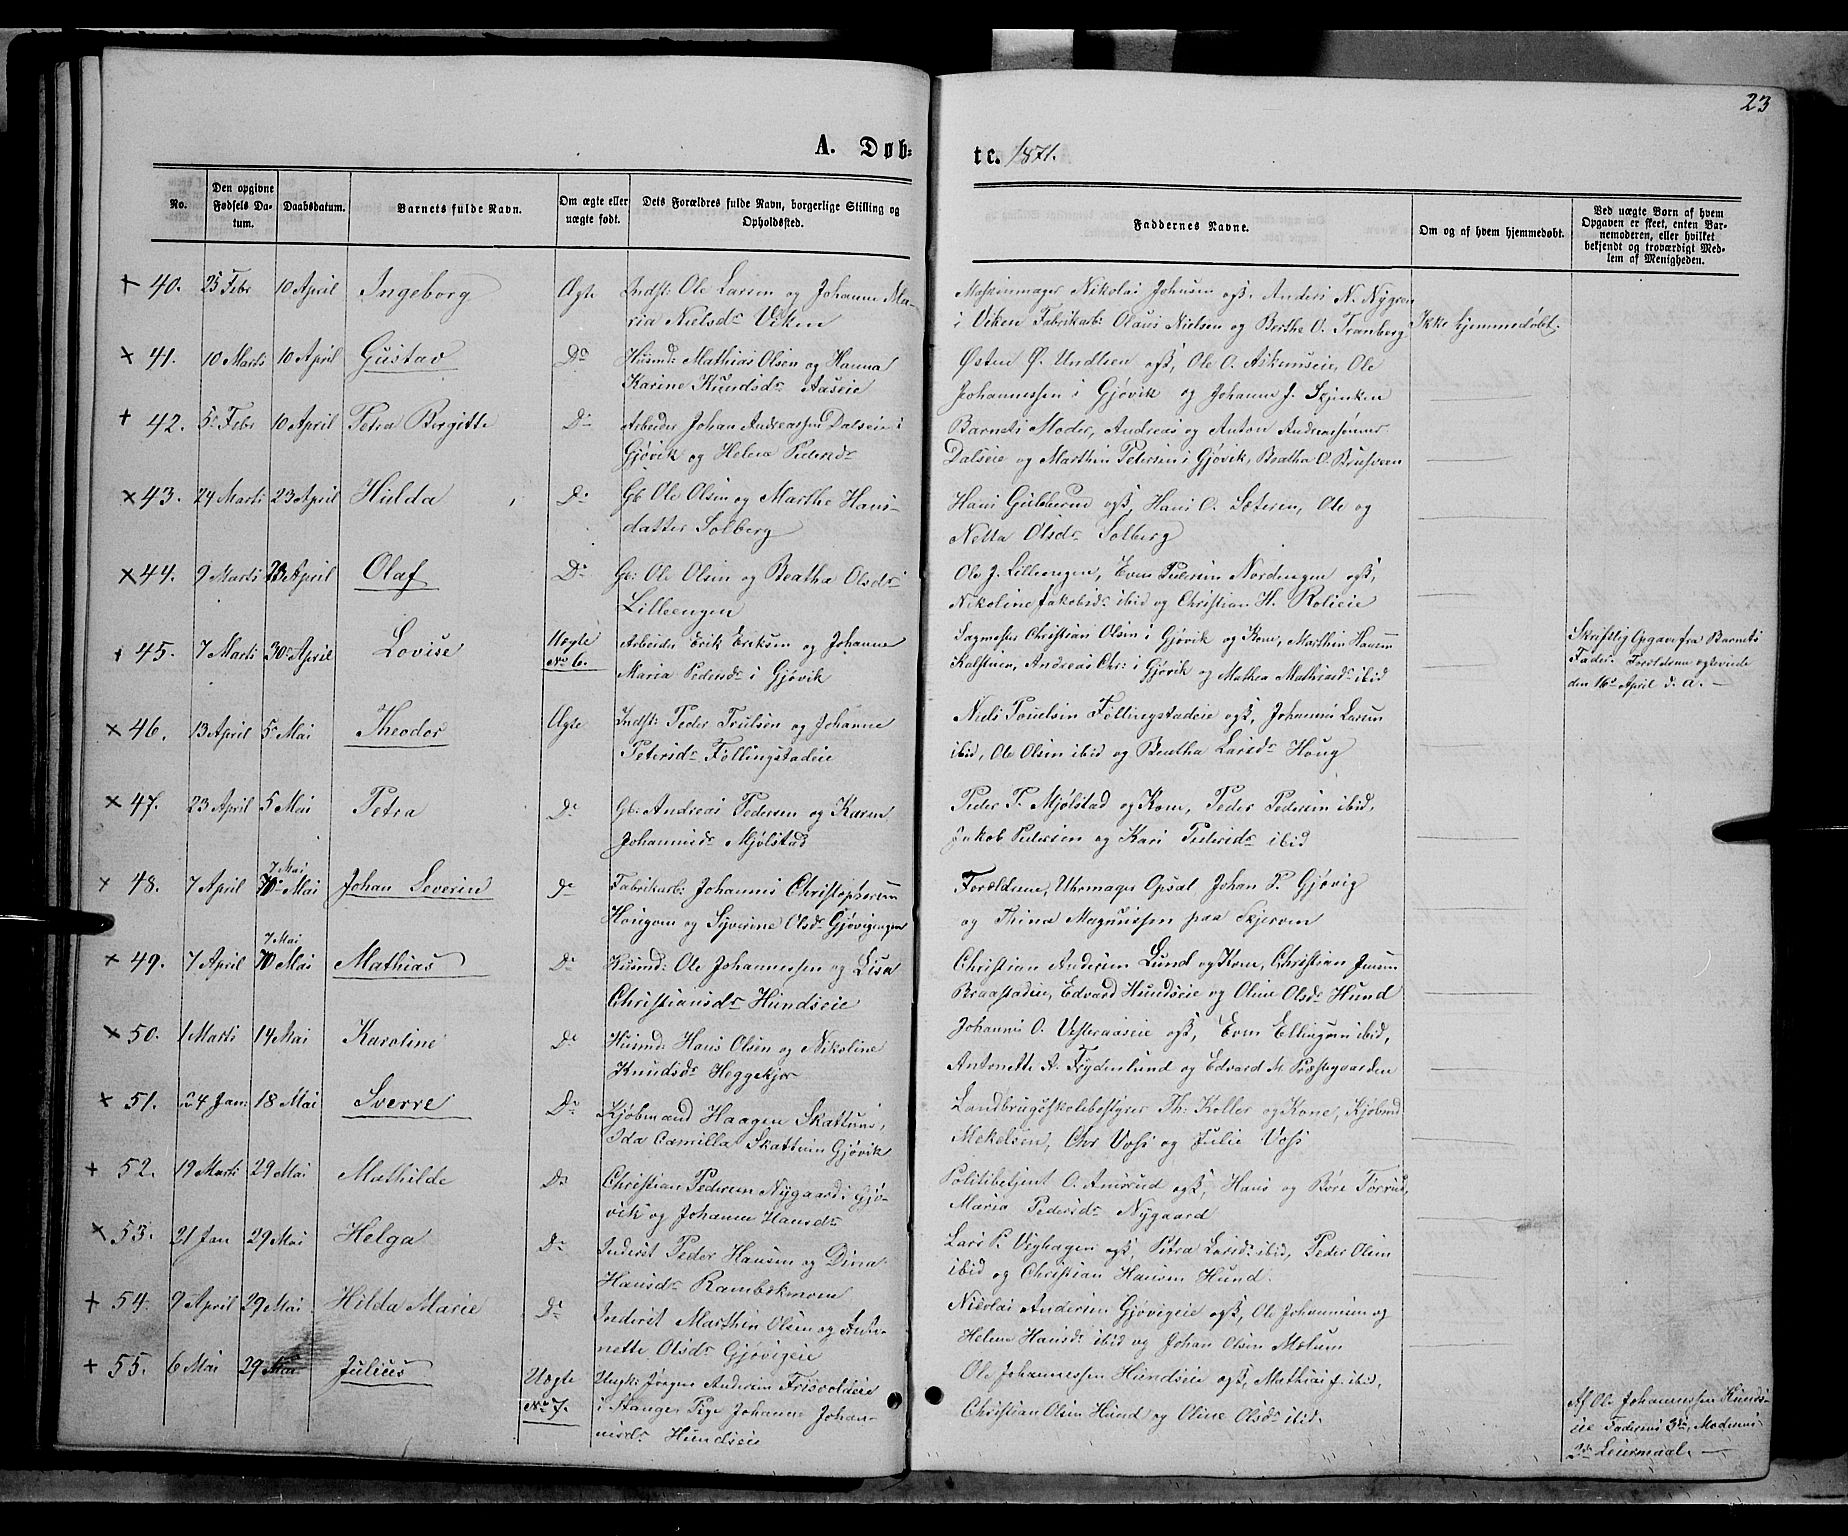 23
A. Døb-
te. 1871.
No.
Den opgivne
Fødsels Da-
tum.
Daabsdatum.
Barnets fulde Navn.
Om ægte eller
uægte født.
Dets Forældres fulde Navn, borgerlige Stilling og
Opholdssted.
Faddernes Navne.
Om og af hvem hjemmedøbt.
Ved uægte Børn af hvem
Opgaven er skeet, enten Bar-
nemoderen, eller hvilket
bekjendt og troværdigt Med-
lem af Menigheden.
+ 40. 25 Febr 10 April Ingeborg Ægte Indst: Ole Larsen og Johanne Ma-
ria Nielsdr Viken
Maskinmager Nikolai Johnsen ogß, Anders N. Nygren
i Viken Fabrikarb: Olaus Nielsen og Berthe O. Tranberg
Ikke hjemmedøbt.
x 41. 10 Marts 10 April Gustav Do Husmd: Mathias Olsen og Hanna
Karine Knudsdr Aaseie
Østen Ø. Undlien ogß, Ole O. Askimseie, Ole
Johannessen i Gjøvik og Johanne J. Skjinken
+ 42. 5 Febr 10 April Petra Birgitte Do Arbeider Johan Andreassen Dalseie i
Gjøvik og Helene Pedersdr
Barnets Moder, Andreas og Anton Andreassønner
Dalseie og Marthin Petersen i Gjøvik, Beatha O. Brusveen
x 43. 24 Marts 23 April Hulda Do Gb. Ole Olsen og Marthe Hans-
datter Solberg
Hans Gulbberud ogß, Hans O. Sæteren, Ole og
Netta Olsdr Solberg
x 44. 9 Marts 23 April Olaf Do Gb: Ole Olsen og Beatha Olsdr
Lilleengen
Ole J. Lilleengen, Even Pedersen Nordengen ogß,
Nikoline Jakobsdr ibid og Christian H. Rolieie
+ 45. 7 Marts 30 April Lovise Uægte
No 6.
Arbeider Erik Eriksen og Johanne
Maria Pedersdr i Gjøvik
Sagmester Christian Olsen i Gjøvik og Kone, Marthin Hansen
Kalstuen, Andreas Chr: i Gjøvik og Mathea Mathiasdr ibid
Skriftlig Opgave fra Barnets
Fader. Forældrene egteviede
den 16de April d. A. —
x 46. 13 April 5 Mai Theodor Ægte Indst: Peder Trulsen og Johanne
Petersdr Føllingstadeie
Niels Poulsen Føllingstadeie ogß, Johannes Larsen
ibid, Ole Olsen ibid og Beatha Larsdr Houg
x 47. 23 April 5 Mai Petra Do Gb. Andreas Pedersen og Karen
Johannesdr Mjølstad
Peder P. Mjølstad og Kone, Peder Pedersen ibid,
Jakob Pedersen og Kari Pedersdr ibid
x 48. 7 April 7 Mai Johan Severin Do Fabrikarb: Johannes Christophersen
Haugom og Syverine Olsdr Gjøvigengen
Forældrene, Uhrmager Opsal Johan P. Gjøvig
og Thina Magnussen paa Skjerven
x 49. 7 April 7 Mai Mathias Do Husmd: Ole Johannessen og Lisa
Christiansdr Hundseie
Christian Andersen Lund og Kone, Christian Jensen
Braastadeie, Edvard Hundseie og Oline Olsdr Hund
x 50. 1 Marts 14 Mai Karoline Do Husmd: Hans Olsen og Nikoline
Knudsdr Heggekjær
Johannes O. Vesteraaseie ogß, Even Ellingsen ibid,
Antonette A. Frydenlund og Edvard M. Præstegaarden
x 51. 4 Jan: 18 Mai Sverre Do Kjøbmand Haagen Skattum,
Ida Camilla Skattum Gjøvik
Landbrugsskolebestyrer Th: Koller og Kone, Kjøbmd
Mikelsen, Chr Voss og Julie Voss
+ 52. 19 Marts 29 Mai Mathilde Do Christian Pedersen Nygaard i Gjø-
vik og Johanne Hansdr
Politibetjent O. Amsrud ogß, Hans og Bore Førrud,
Maria Pedersdr Nygaard
x 53. 21 Jan 29 Mai Helga Do Inderst Peder Hansen og Dina
Hansdr Rambekmoen
Lars P. Vighagen ogß, Petra Larsdr ibid, Peder Olsen
ibid og Christian Hansen Hund.
+ 54. 9 April 29 Mai Hilda Marie Do Inderst Marthin Olsen og
nette Olsdr Gjøvigeie
Nicolai Andersen Gjøvigeie ogß, Ole Johannesen og
Helene Hansdr ibid og Johan Olsen Mælum
+ 55. 6 Mai 29 Mai Julius Uægte
No 7.
Ungk: Jørgen Andersen Frisvoldeie
i Stange, Pige Johanne Johan-
nesdr Hundseie
Ole Johannessen Hundseie ogß, Mathias J. ibid,
Christian Olsen Hund og Oline Olsdr ibid.
Af Ole Johannessen Hunds-
eie Faderens 3die, Moderens
Leiermaal —